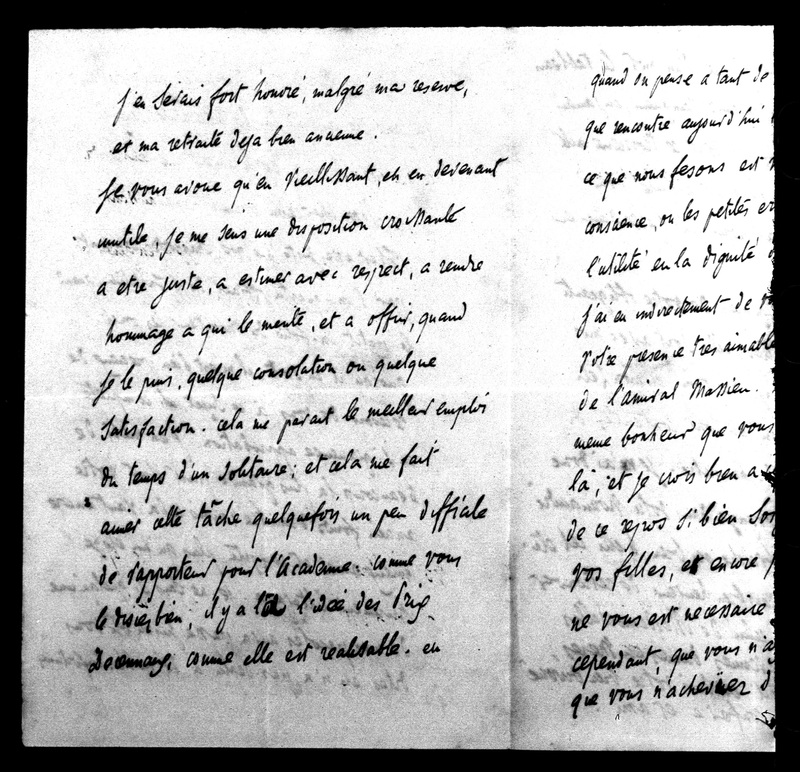 j'en serais fort honoré, malgré ma reserve,
et ma retraite deja bien ancienne.
je vous avoue qu'en vieillissant, et en devenant
inutile, je me sens une disposition croissante
a etre juste, a estimer avec respect, a rendre
hommage a qui le merite, et a offrir, quand
je le puis, quelque consolation ou quelque
satisfaction. cela me parait le meilleur emploi
du temps d'un solitaire; et cela me fait
aimer cette tâche quelquefois un peu difficile
de rapporteur pour l'Academie. comme vous
le disiez bien, il y a là l'idée des Prix
Decennaux, comme elle est realisable. en
quand on pense a tant de
que rencontre aujourd'hui
ce que nous fesons est
conscience, ou les petites
l'utilité en la dignité
j'ai eu indirectement de
votre presence tres aimable
de l'amiral Massieu.
meme bonheur que vous
là, et je crois bien a
de ce repos si bien
vos filles, et encore
ne vous est necessaire
cependant, que vous
que vous n'acheviez